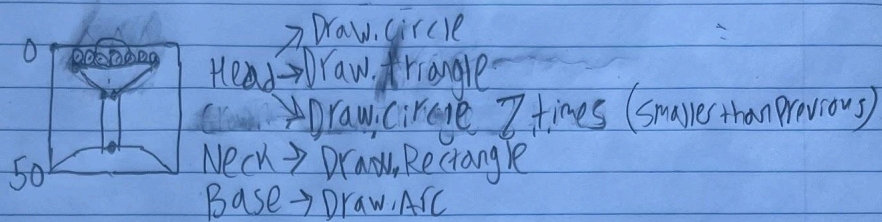 0
→ Draw.Circle
Head → Draw.triangle
→ Draw.Circle 7 times (smaller than previous)
Neck → Draw.Rectangle
50
Base → Draw.Arc